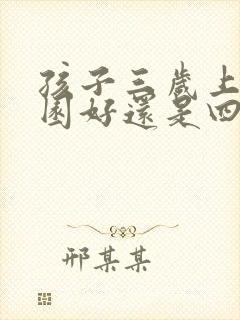 孩子三歲上
園好還是四
邢某某